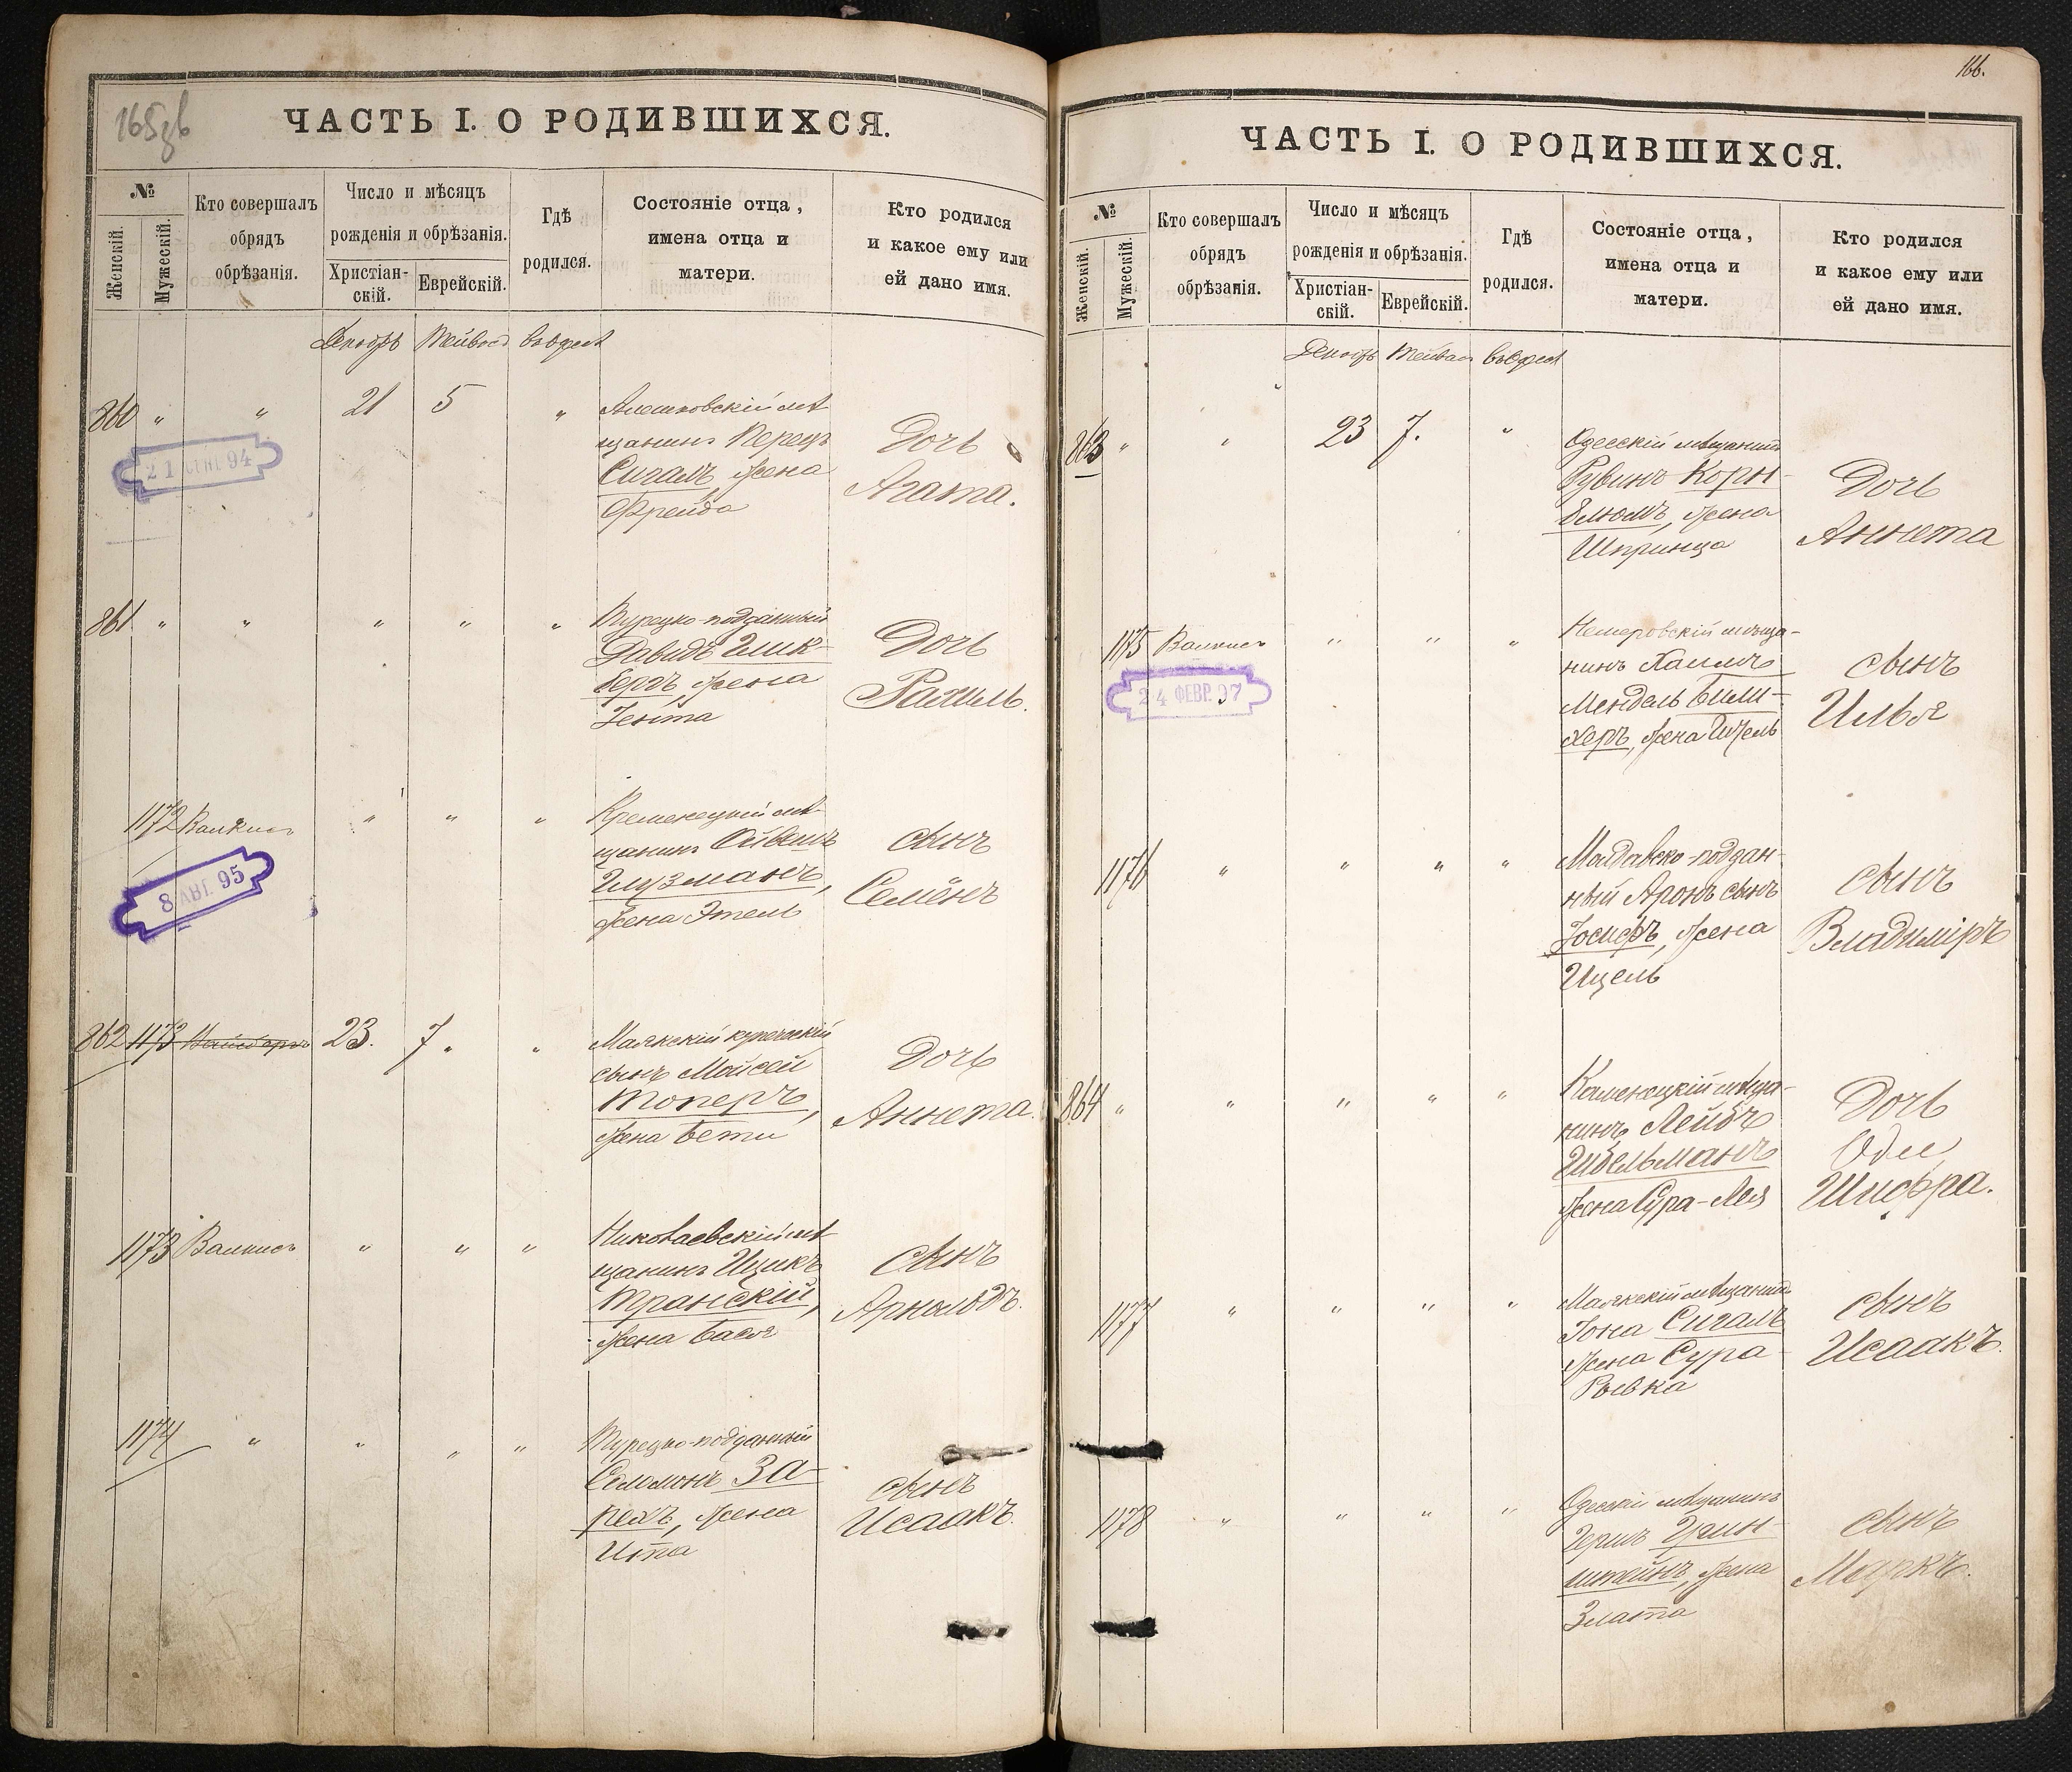 165 зв
ЧАСТЬ I. О РОДИВШИХСЯ.
№
Женскій.
Мужескій.
Кто совершалъ
обрядъ
обрѣзанія.
Число и мѣсяцъ
рожденія и обрѣзанія.
Христіан-
скій.
Еврейскій.
Гдѣ
родился.
Состояніе отца,
имена отца и
матери.
Кто родился
и какое ему или
ей дано имя.
Декабрь Тейвес
860 " " 21 5 "
Алешковскій мѣ-
щанинъ Перецъ
Сигалъ, жена
Фрейда
Дочь
Агата.
21 94
861 " " " " "
Турецко-подданный
Давидъ Глик-
бергъ, жена
Іента
Дочь
Рахиль.
1172 " " "
Кременецкій мѣ-
щанинъ
Глузманъ,
жена Этель
сынъ
Семёнъ
8 АВГ. 95
862 1173 23. 7. "
Маякскій купеческій
сынъ Мойсей
Топеръ,
жена Бети
Дочь
Аннета.
1173 " " "
Николаевскій мѣ-
щанинъ Ицикъ
Транскій,
жена Бася
сынъ
Арнольдъ.
1174 " " " "
Турецко-подданный
Соломонъ За-
рехъ, жена
Ита
сынъ
Исаакъ.
166.
ЧАСТЬ I. О РОДИВШИХСЯ.
№
Женскій.
Мужескій.
Кто совершалъ
обрядъ
обрѣзанія.
Число и мѣсяцъ
рожденія и обрѣзанія.
Христіан-
скій.
Еврейскій.
Гдѣ
родился.
Состояніе отца,
имена отца и
матери.
Кто родился
и какое ему или
ей дано имя.
Декабрь Тейвес
863 " " 23 7. "
Одесскій мѣщанинъ
Рувинъ Корн-
блюмъ, жена
Шпринца
Дочь
Аннета
1175 " " "
Немеровскій мѣща-
нинъ Хаимъ
Мендель
жена
сынъ
Илья
24 ФЕВР. 97
1176 " " " "
Молдавско-поддан-
ный Аронъ сынъ
Іосифъ, жена
Ицель
сынъ
Владиміръ
864 " " " " "
Каменецкій мѣща-
нинъ Лейбъ
жена Сура-Лея
Дочь
Оди
Шифра.
1177 " " " "
Маякскій мѣщанинъ
Іона Сигалъ
жена Сура
Рывка
сынъ
Исаакъ.
1178 " " " "
Одесскій мѣщанинъ
Гершъ Грин-
штейнъ, жена
Злата
сынъ
Маркъ.